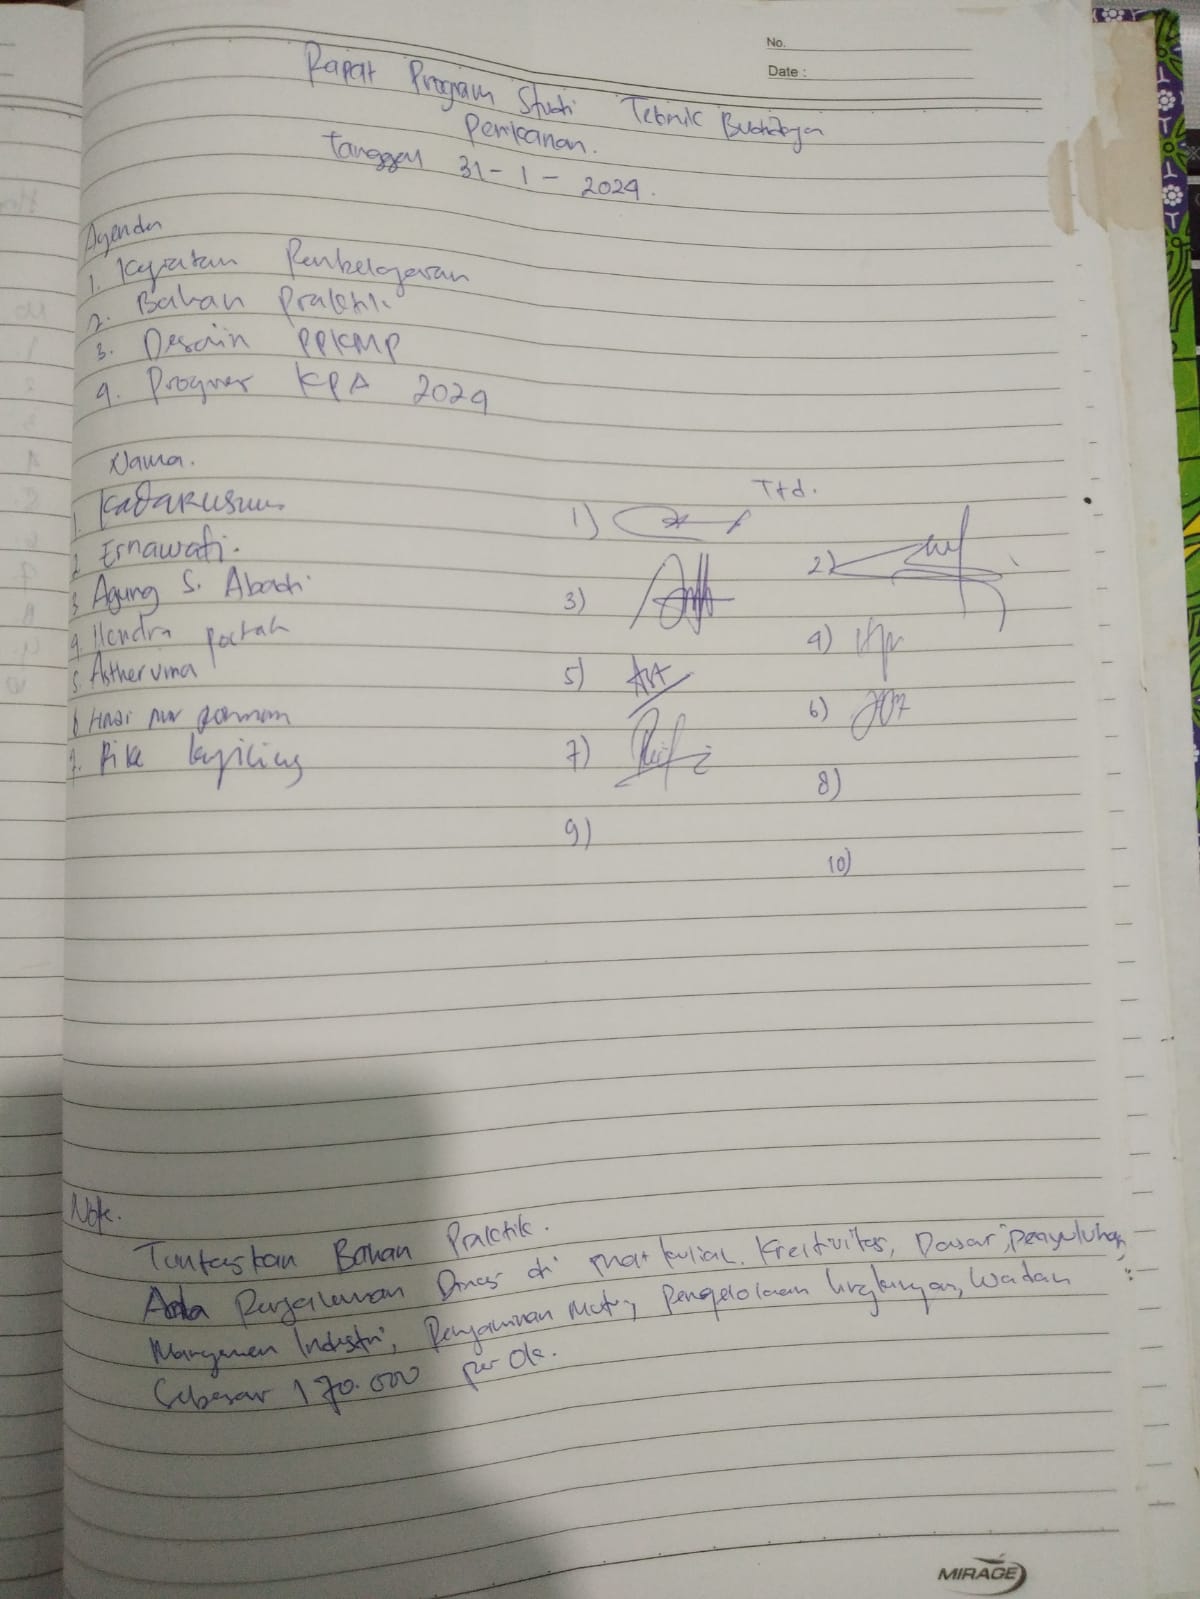 No.
Date :
Rapat Program Studi Teknik Budidaya
Perikanan.
Tanggal 31 - 1 - 2024.
Agenda
1. Kegiatan Pembelajaran
2. Bahan Praktik.
3. Desain PPKMP
4. Progres KPA 2024
Nama.
Ttd.
1. Kadarusman
1)
2. Ernawati.
2)
3. Agung S. Abadi
3)
4. Hendra Poltak
4)
5. Astheruma
5)
6.
6)
7. Rike
7)
8)
9)
10)
Note.
Tuntaskan Bahan Praktik.
Ada Perjalanan Dinas di mat kuliah. Kreativitas, Dasar" penyuluhan,
Manajemen Industri, Penjaminan Mutu, Pengelolaan lingkungan, Wadah
Sebesar 170.000 per Ok.
MIRAGE